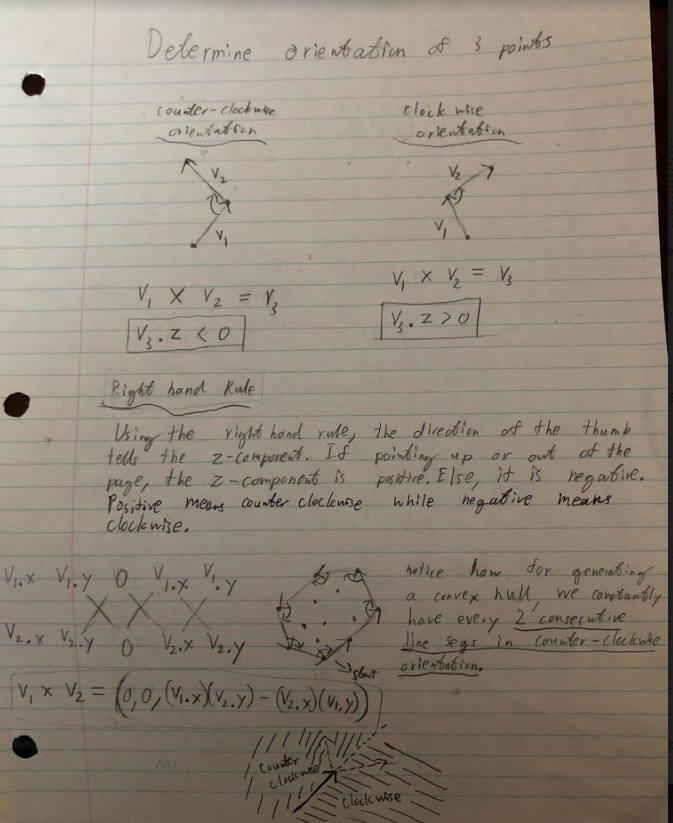 Determine orientation of 3 points
counter-clockwise
orientation
clockwise
orientation
V₂
V₁
V₂
V₁
V₁ X V₂ = V₃
V₃.z < 0
V₁ X V₂ = V₃
V₃.z > 0
Right hand Rule
Using the right hand rule, the direction of the thumb
tells the z-component. If pointing up or out of the
page, the z-component is positive. Else, it is negative.
Positive means counter clockwise while negative means
clockwise.
V₁.x V₁.y 0 V₁.x V₁.y
V₂.x V₂.y 0 V₂.x V₂.y
start
notice how for generating
a convex hull, we constantly
have every 2 consecutive
line segs in counter-clockwise
orientation.
V₁ x V₂ = (0,0,(V₁.x)(V₂.y) - (V₂.x)(V₁.y))
counter
clockwise
clockwise